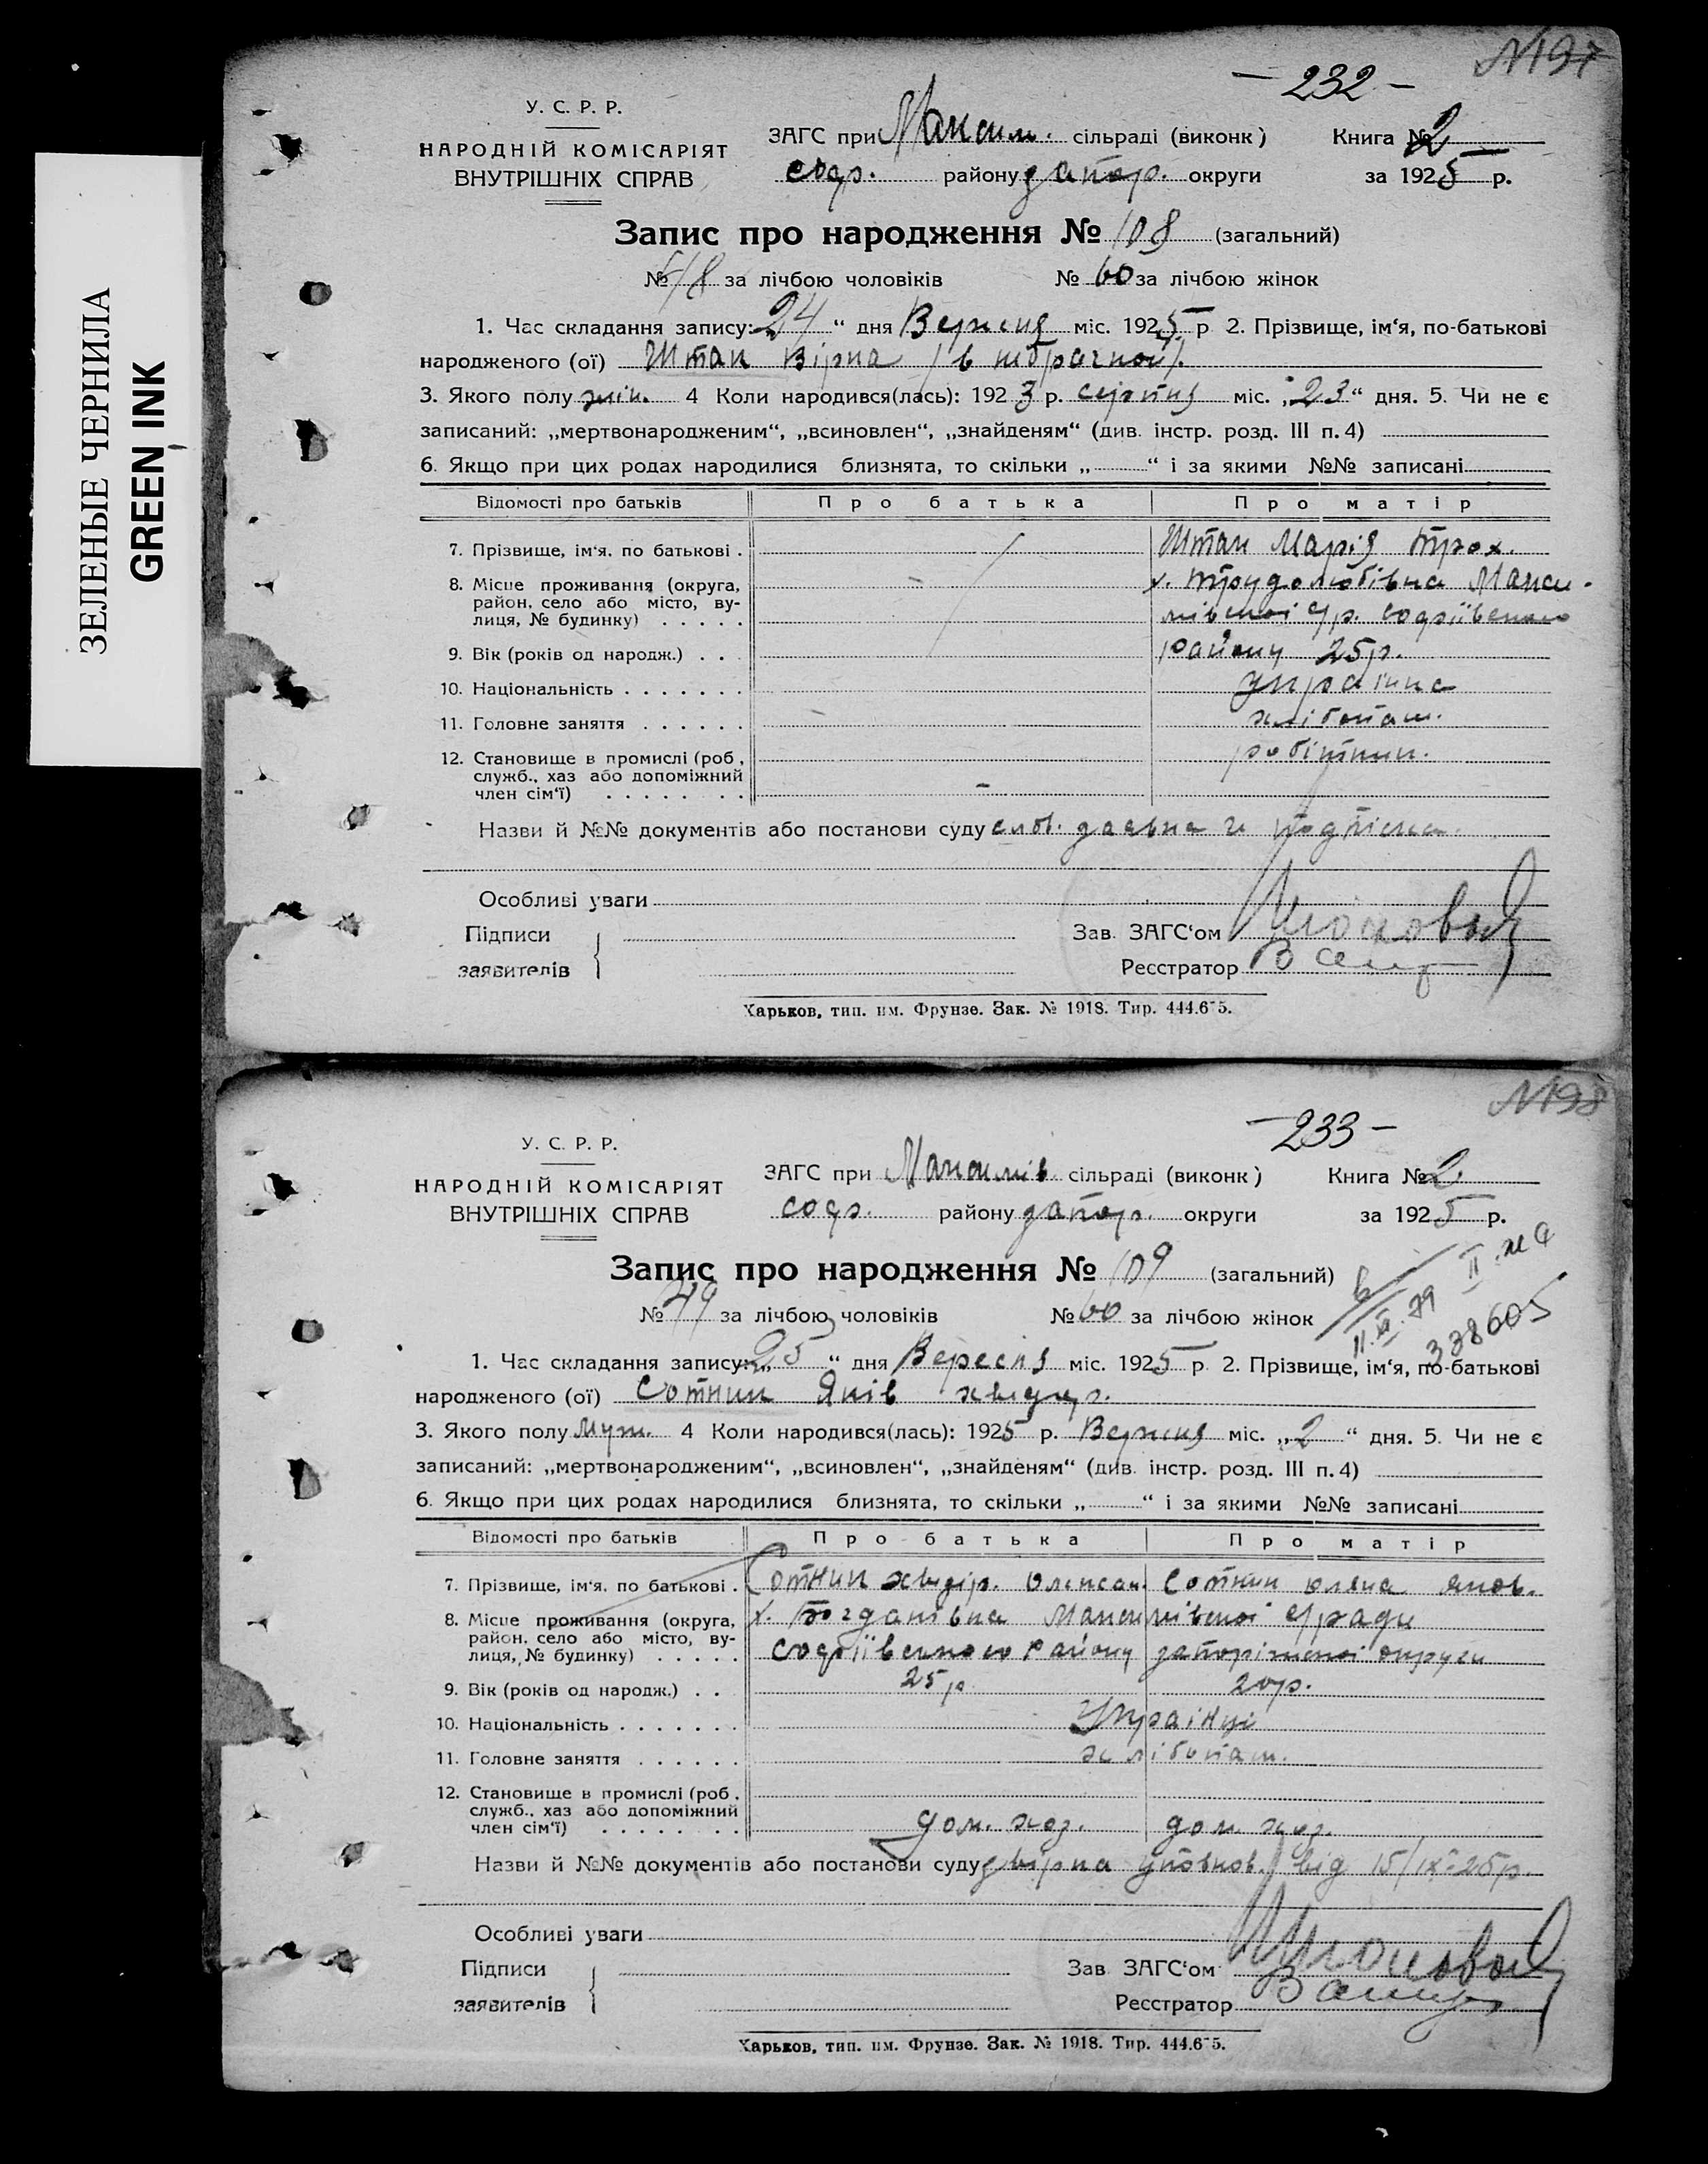 ЗЕЛЕНЫЕ ЧЕРНИЛА
GREEN INK
№197
— 232 —
У. С. Р. Р.
НАРОДНІЙ КОМІСАРІЯТ
ВНУТРІШНІХ СПРАВ
ЗАГС при Максим. сільраді (виконк) Книга № 2
софр. району запор. округи за 1925 р.
Запис про народження № 108 (загальний)
№ 48 за лічбою чоловіків № 60 за лічбою жінок
1. Час складання запису: 24 “ дня Вересня міс. 1925 р 2. Прізвище, ім‘я, по-батькові
народженого (ої) Штан Вірна
3. Якого полу жін. 4 Коли народився(лась): 1923 р. серпня міс. „23“ дня. 5. Чи не є
записаний: „мертвонародженим“, „всиновлен“, „знайденям“ (див. інстр. розд. III п. 4)
6. Якщо при цих родах народилися близнята, то скільки „ “ і за якими №№ записані
Відомості про батьків Про батька Про матір
7. Прізвище, ім‘я, по батькові . Штан Марія трох.
8. Місце проживання (округа, х. трудолюбівка Макси-
район, село або місто, ву- мівської с/р. софіївського
лиця, № будинку) . . . . .
9. Вік (років од народж.) . . . району 25 р.
10. Національність . . . . . . . українка
11. Головне заняття . . . . . . хлібопаш.
12. Становище в промислі (роб., робітник.
служб., хаз або допоміжний
член сім‘ї) . . . . . . . .
Назви й №№ документів або постанови суду слов. заявка и подписка.
Особливі уваги
Підписи Зав. ЗАГС‘ом
заявителів Реєстратор
Харьков, тип. им. Фрунзе. Зак. № 1918. Тир. 444.675.
№198
— 233 —
У. С. Р. Р.
НАРОДНІЙ КОМІСАРІЯТ
ВНУТРІШНІХ СПРАВ
ЗАГС при Максимів сільраді (виконк) Книга № 2
софр. району запор. округи за 1925 р.
Запис про народження № 109 (загальний)
№ 49 за лічбою чоловіків № 60 за лічбою жінок
338605
1. Час складання запису: „25“ дня Вересня міс. 1925 р 2. Прізвище, ім‘я, по-батькові
народженого (ої) Сотник Яків хведір.
3. Якого полу муж. 4 Коли народився(лась): 1925 р. Вересня міс. „2“ дня. 5. Чи не є
записаний: „мертвонародженим“, „всиновлен“, „знайденям“ (див. інстр. розд. III п. 4)
6. Якщо при цих родах народилися близнята, то скільки „ “ і за якими №№ записані
Відомості про батьків Про батька Про матір
7. Прізвище, ім‘я, по батькові . Сотник хведір. Олексан. Сотник уляна яков.
8. Місце проживання (округа, х. Богданівка Максимівської с/ради
район, село або місто, ву- софіївського району запоріжської округи
лиця, № будинку) . . . . .
9. Вік (років од народж.) . . 25 р 20 р.
10. Національність . . . . . . . Українці
11. Головне заняття . . . . . . хлібопаш.
12. Становище в промислі (роб.,
служб., хаз або допоміжний
член сім‘ї) . . . . . . . . дом. хоз. дом. хоз.
Назви й №№ документів або постанови суду довірка уповнов. від 15/IX-25р.
Особливі уваги
Підписи Зав ЗАГС‘ом
заявителів Реєстратор
Харьков, тип. им. Фрунзе. Зак. № 1918. Тир. 444.675.